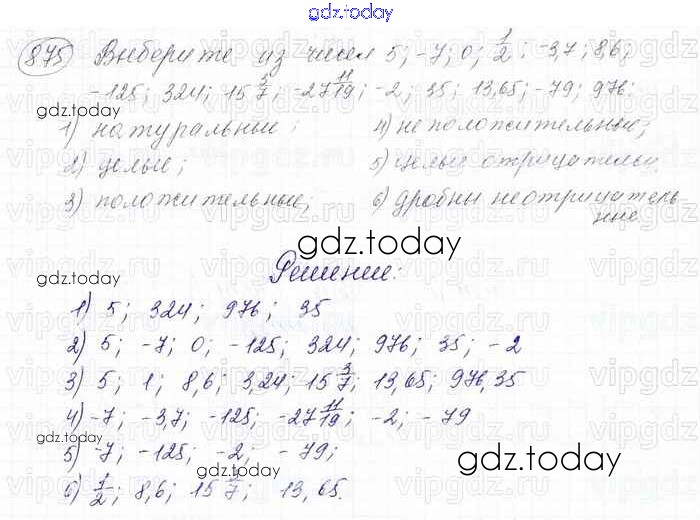 gdz.today
875 Выберите из чисел 5; -7; 0; 1/2; -3,7; 8,6;
-125; 324; 15 3/7; -27 11/19; -2; 35; 13,65; -79; 976:
gdz.today
1) натуральные; 4) неположительные;
2) целые; 5) целые отрицательн.
3) положительные; 6) дробны неотрицатель
нные
gdz.today
gdz.today
Решение:
1) 5; 324; 976; 35
2) 5; -7; 0; -125; 324; 976; 35; -2
3) 5; 1; 8,6; 3,24; 15 3/7; 13,65; 976,35
4) -7; -3,7; -125; -27 11/19; -2; -79
5) -7; -125; -2; -79;
gdz.today
gdz.today
6) 1/2; 8,6; 15 3/7; 13,65.